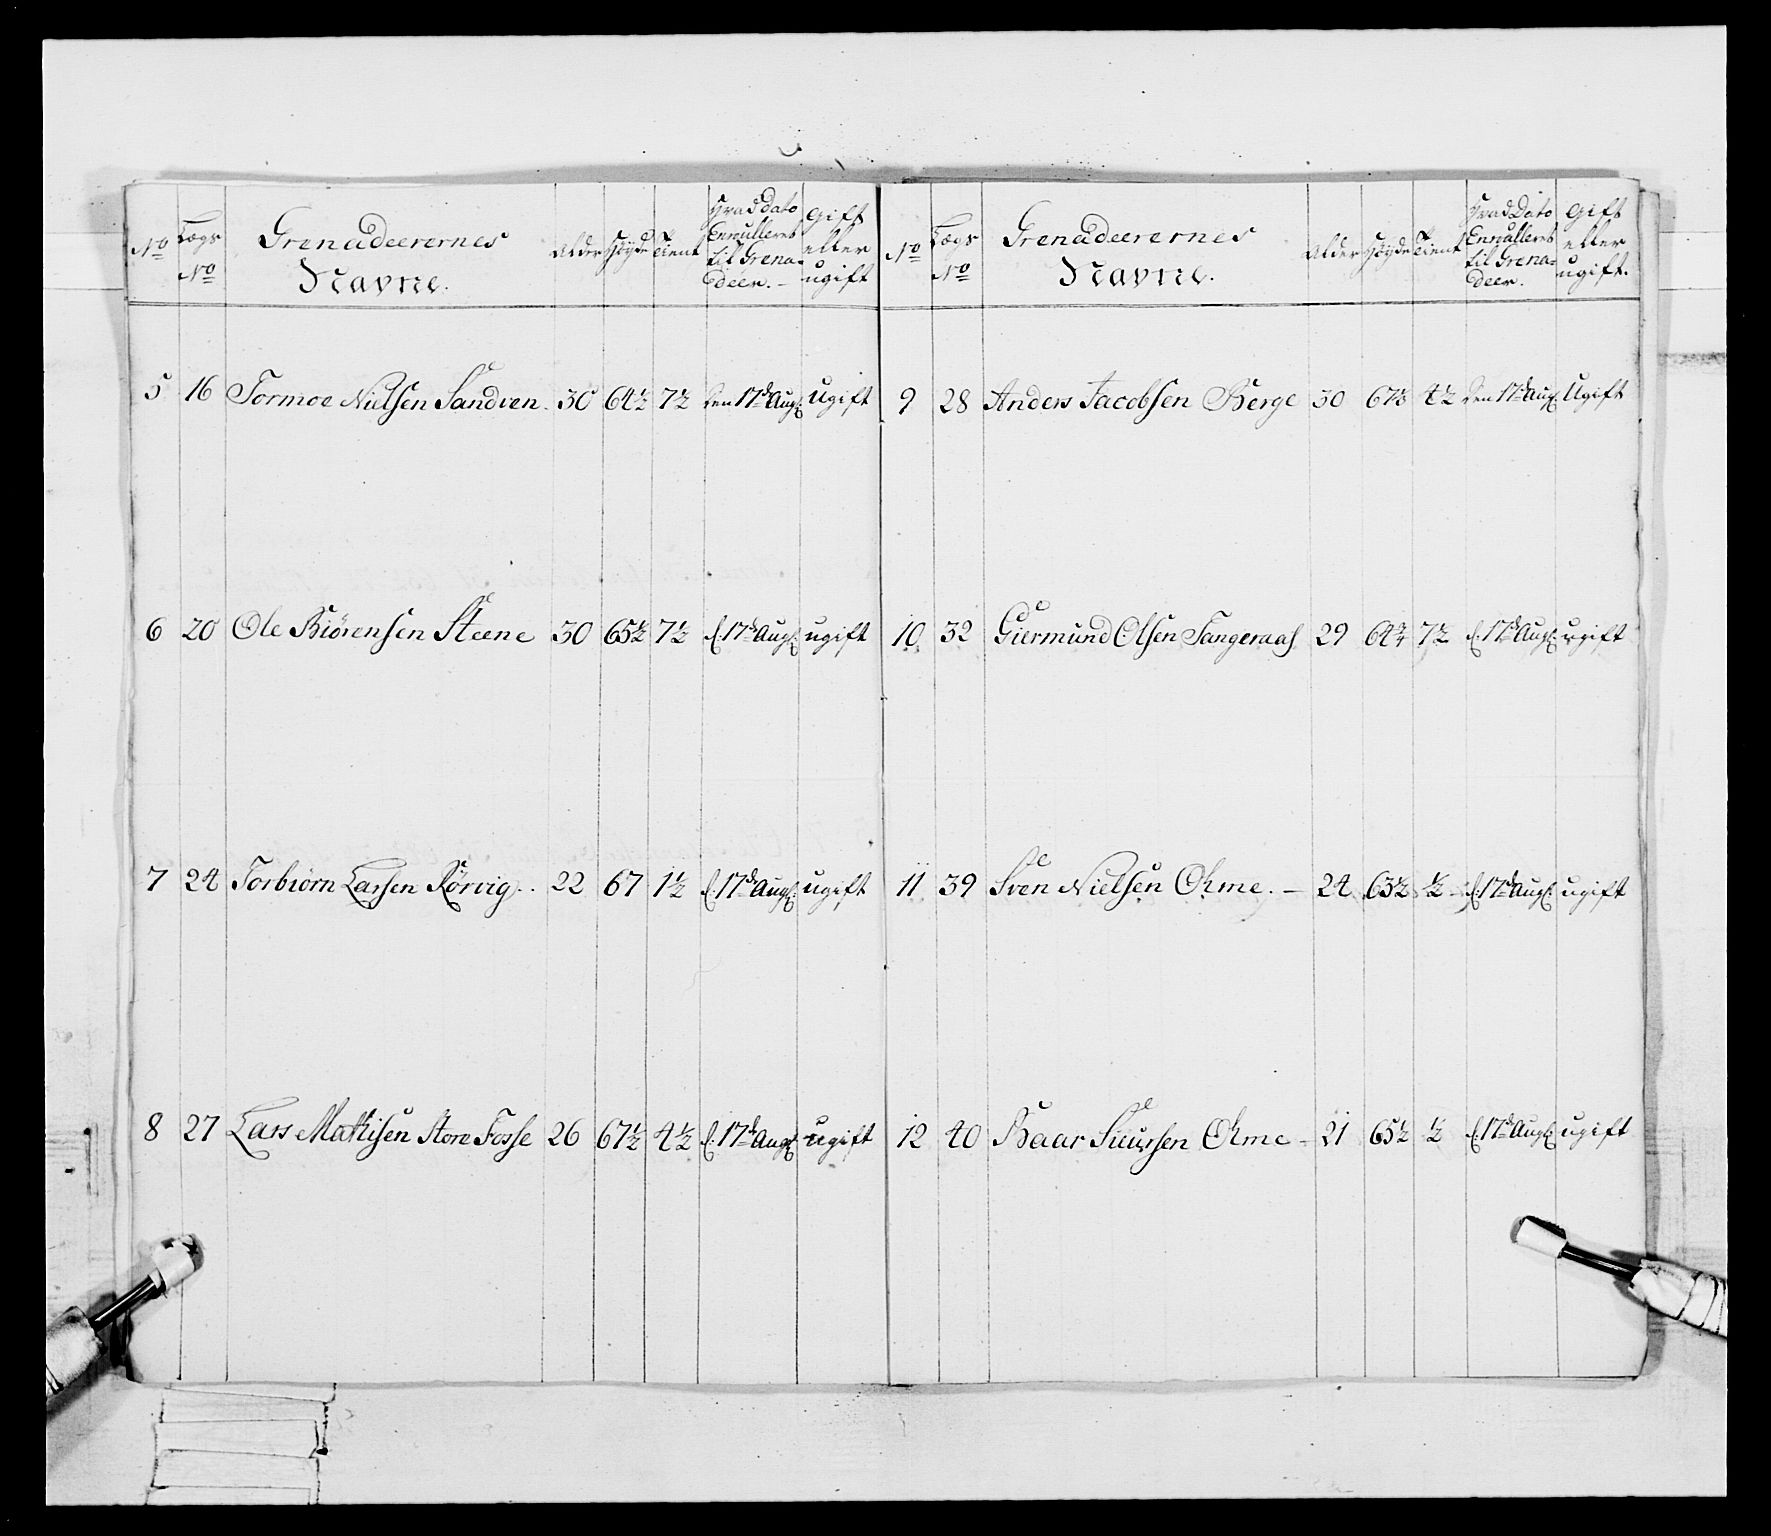 No Lægs No Grenadeerernes Navne. Alder Høyde Tient Hvad Dato Enrulleret til Grenadeer. Gift eller ugift
5 16 Tormoe Nielsen Sandven 30 64½ 7½ Den 17de Augs: Ugift
6 20 Ole Biørensen Steene 30 65½ 7½ d: 17de Augs: ugift
7 24 Torbiørn Larsen Rørvig 22 67 1½ d: 17de Augs: ugift
8 27 Lars Mathisen Store Fosse 26 67½ 4½ d: 17de Augs: ugift
No Lægs No Grenadeerernes Navne. Alder Høyde Tient Hvad Dato Enrulleret til Grenadeer. Gift eller ugift.
9 28 Anders Jacobsen Berge 30 4½ Den 17de Aug: Ugift
10 32 Giermund Olsen Tangeraas 29 64¾ 7½ d: 17de Augs: ugift
11 39 Sven Nielsen Ohme. – 24 63½ ½ d: 17de Augs: ugift
12 40 Baar Siursen Ohme – 21 65½ ½ d: 17de Augs: ugift